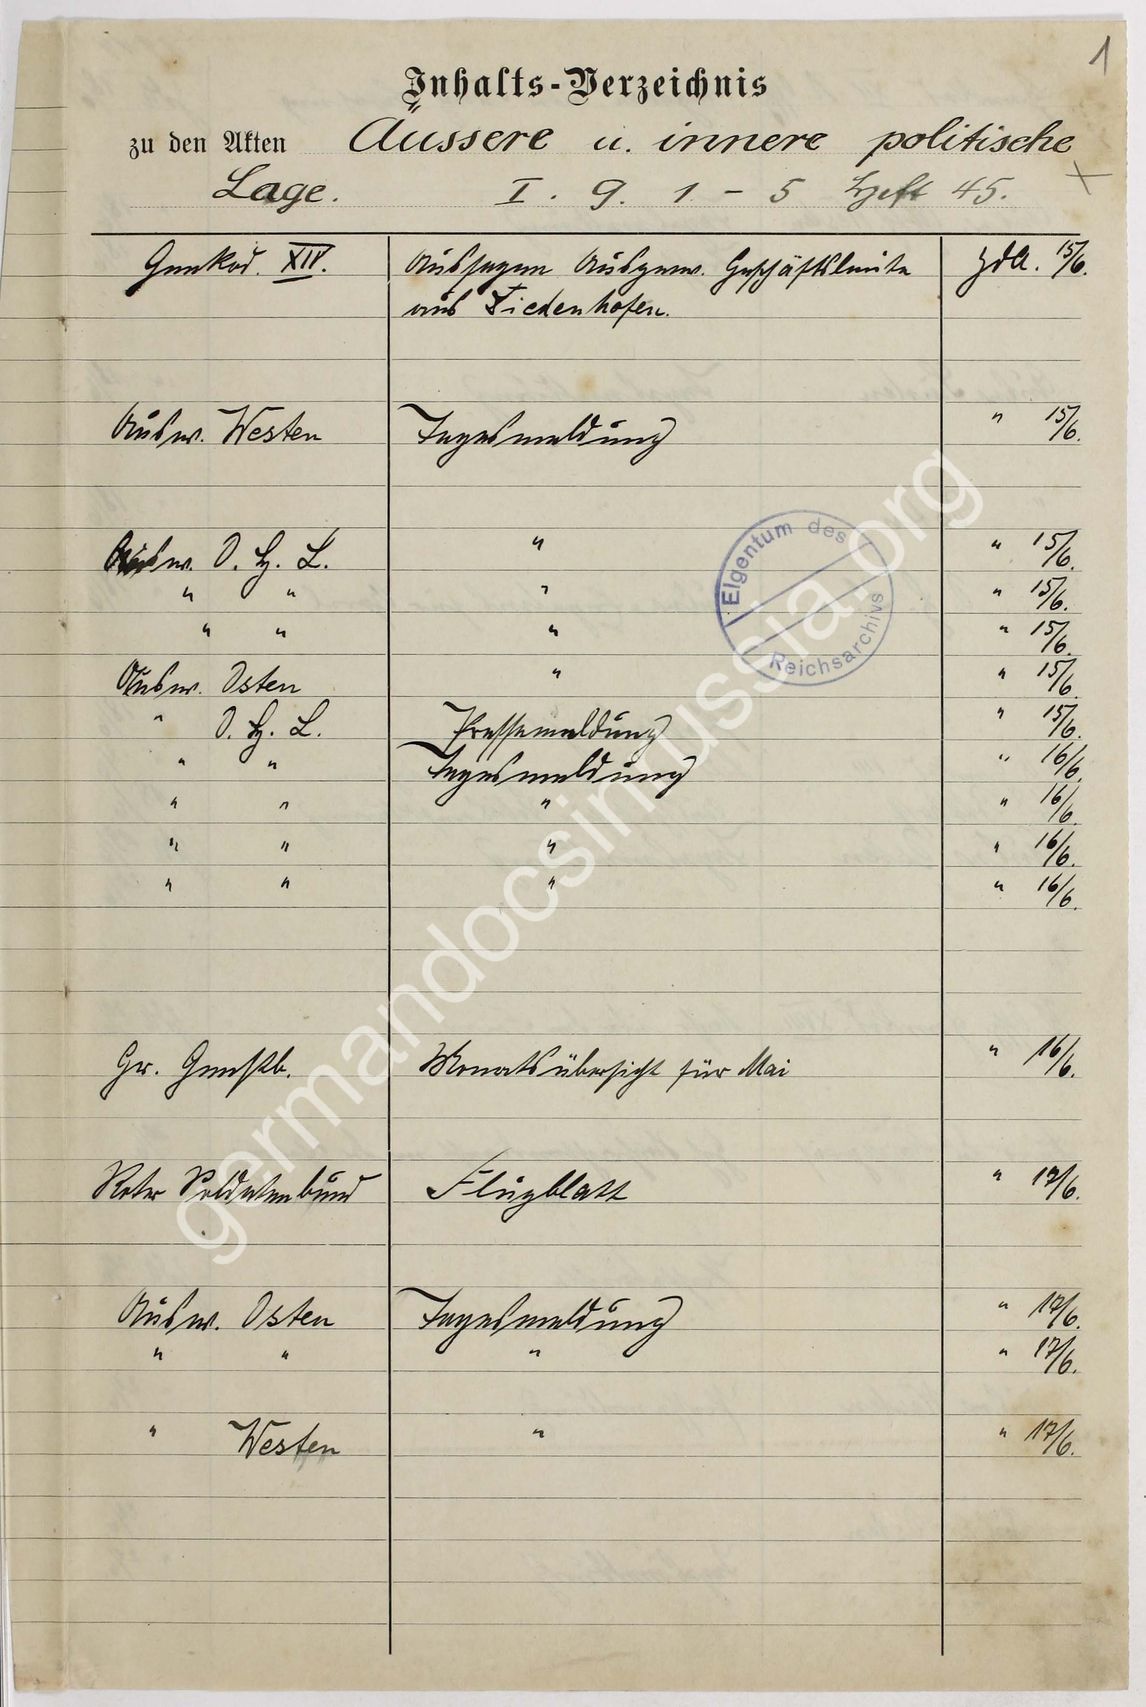 1
Inhalts-Verzeichnis
zu den Akten Äussere u. innere politische
Lage. I. 9. 1 - 5 Heft 45.
Genkod. XIV. Aussagen Ausgew. Geschäftsleute zdA. 15/6.
aus Diedenhofen.
Ausw. Westen Tagesmeldung " 15/6.
Ausw. O. H. L. " " 15/6.
" " " " 15/6.
" " " " 15/6.
Ausw. Osten " " 15/6.
" O. H. L. Pressemeldung " 15/6.
" " Tagesmeldung " 16/6.
" " " " 16/6.
" " " " 16/6.
" " " " 16/6.
Gr. Genstb. Monatsübersicht für Mai " 16/6.
Roter Soldatenbund Flugblatt " 17/6.
Ausw. Osten Tagesmeldung " 17/6.
" " " " 17/6.
" Westen " " 17/6.
Eigentum des
Reichsarchivs
germandocsinrussia.org